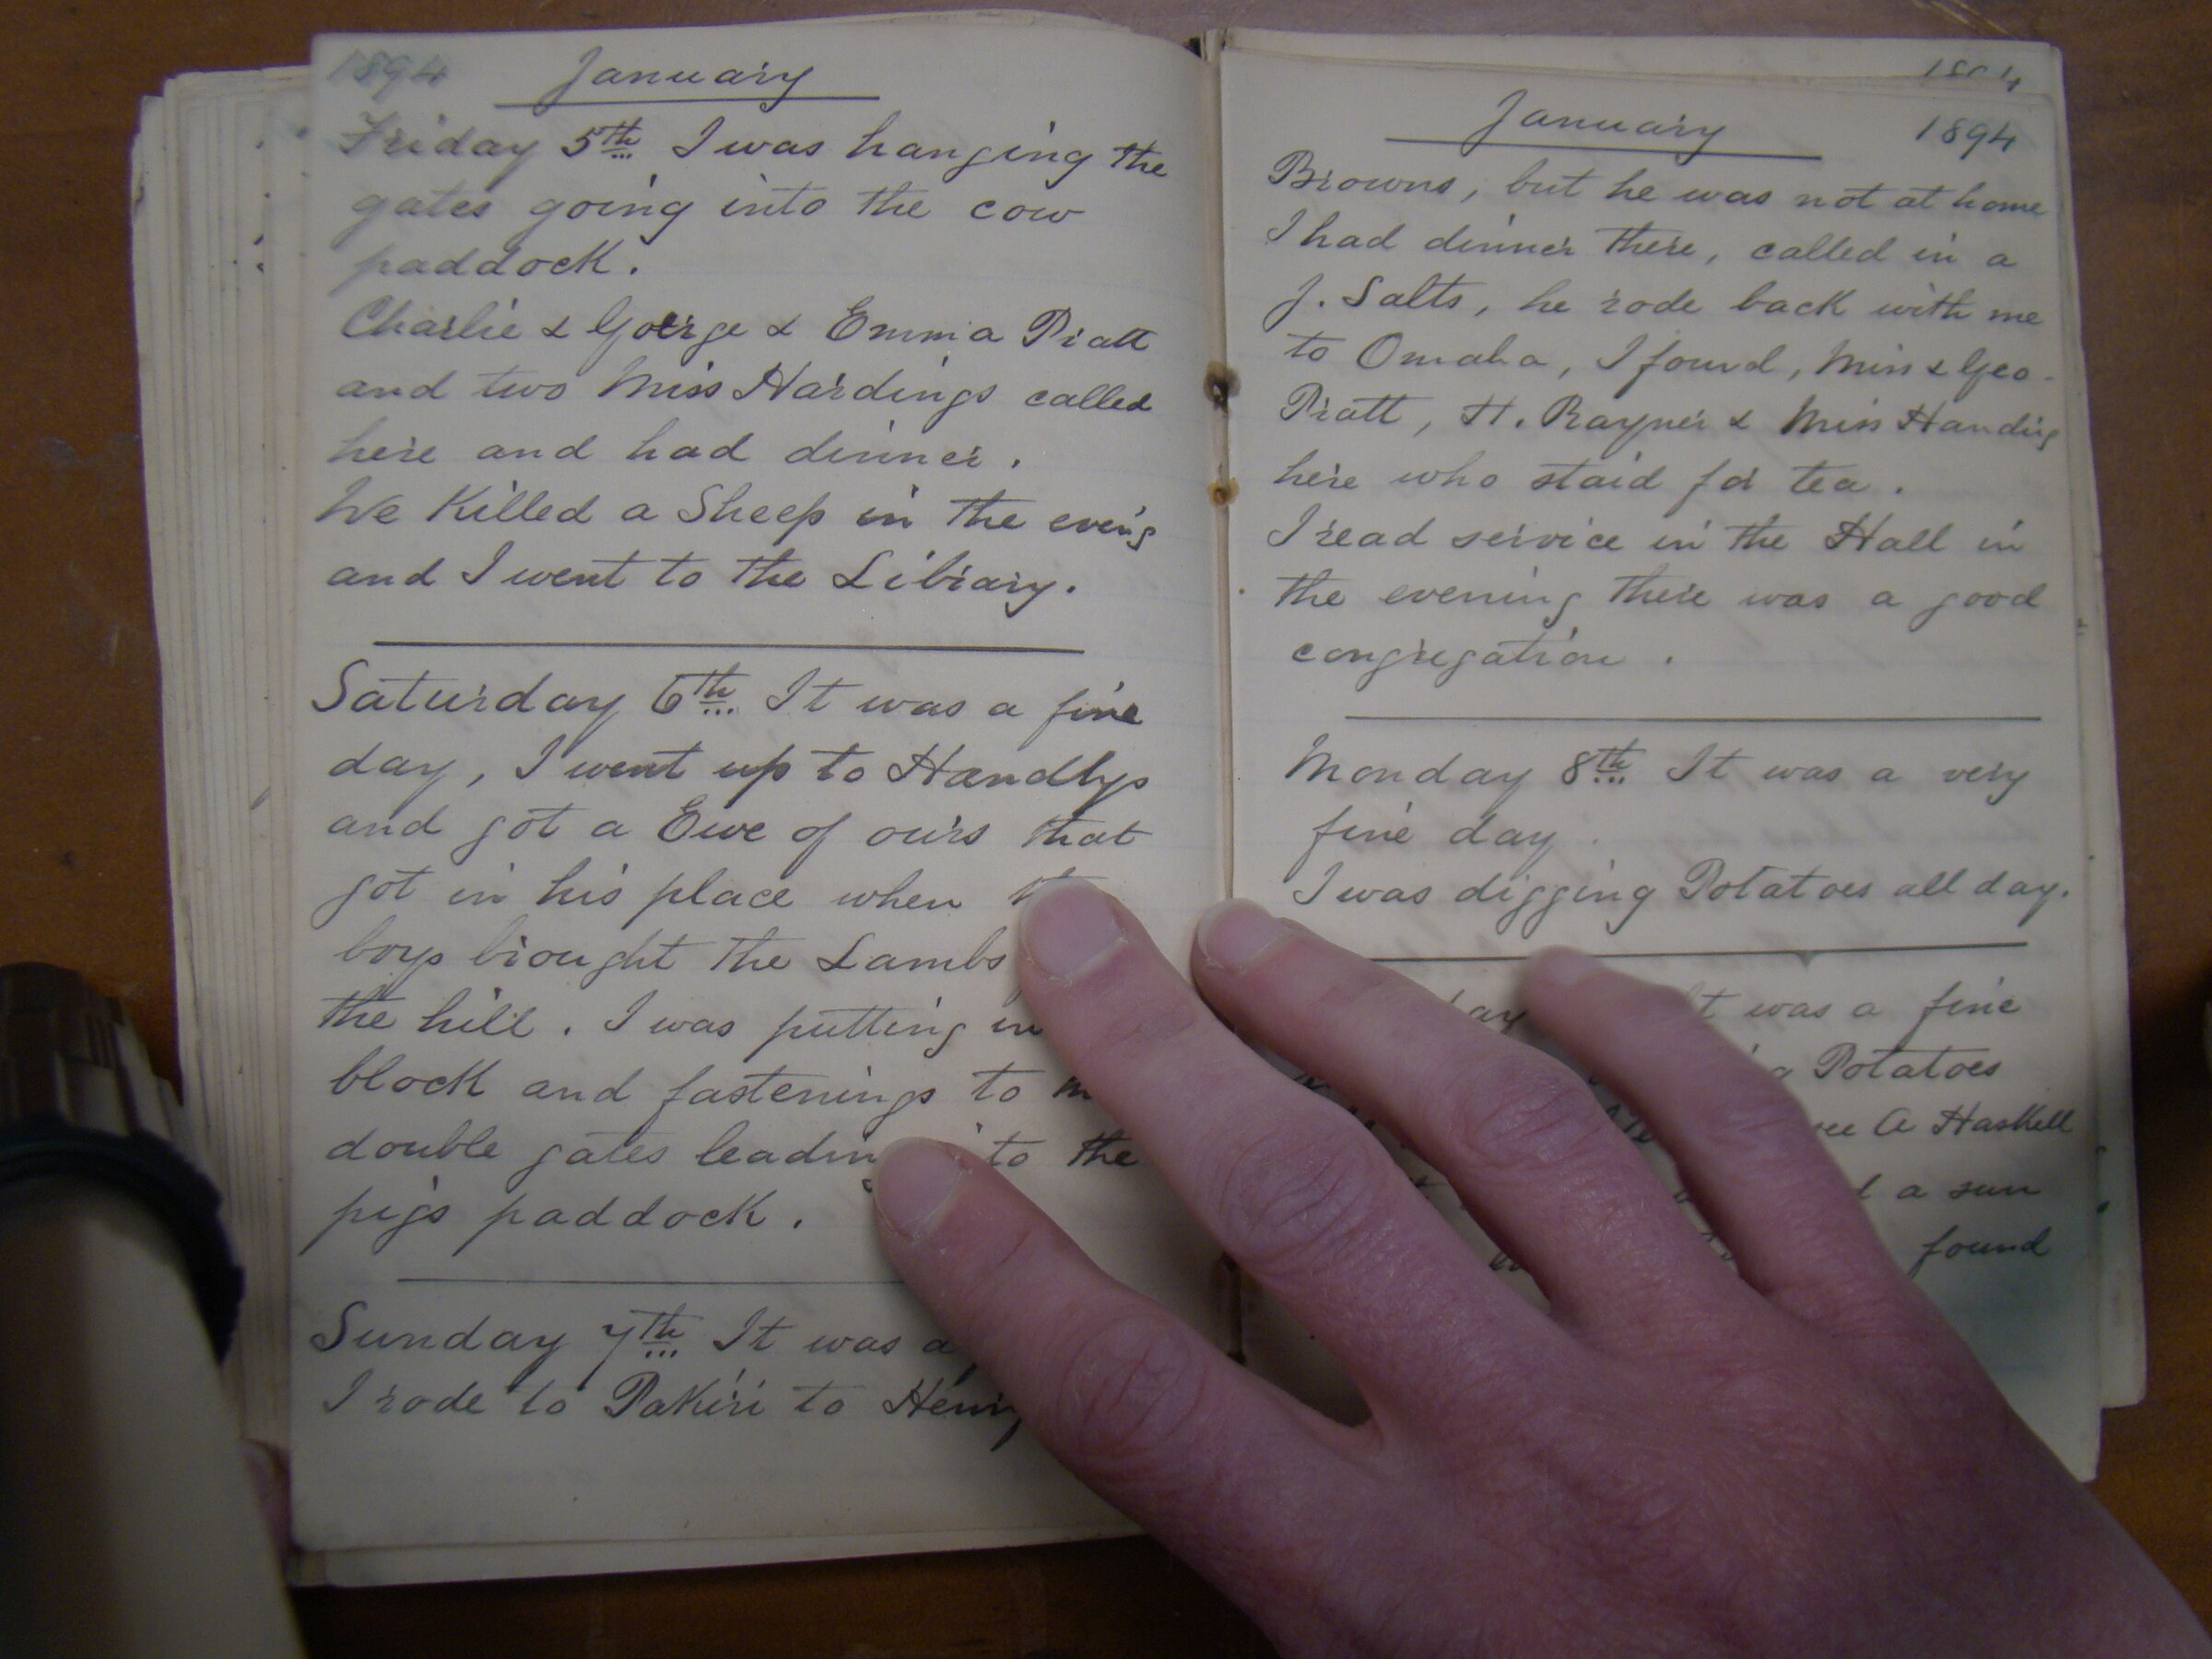 1894 January
Friday 5th I was hanging the
gates going into the cow
paddock.
Charlie & George & Emma Pratt
and two Miss Hardings called
here and had dinner.
We Killed a Sheep in the eveing
and I went to the Library.
Saturday 6th It was a fine
day, I went up to Handlys
and got a Ewe of ours that
got in his place when
boys brought the Lambs
the hill. I was putting in
block and fastenings to
double gates leading to the
pigs paddock.
Sunday 7th It was a
I rode to Pakiri to Henry
1894
January 1894
Browns, but he was not at home
I had dinner there, called in a
J. Salts, he rode back with me
to Omaha, I found, Miss & Geo-
Pratt, H. Rayner & Miss Harding
here who staid for tea.
I read service in the Hall in
the evening there was a good
congregation.
Monday 8th It was a very
fine day.
I was digging Potatoes all day.
It was a fine
Potatoes
A Haskell
a sun
found